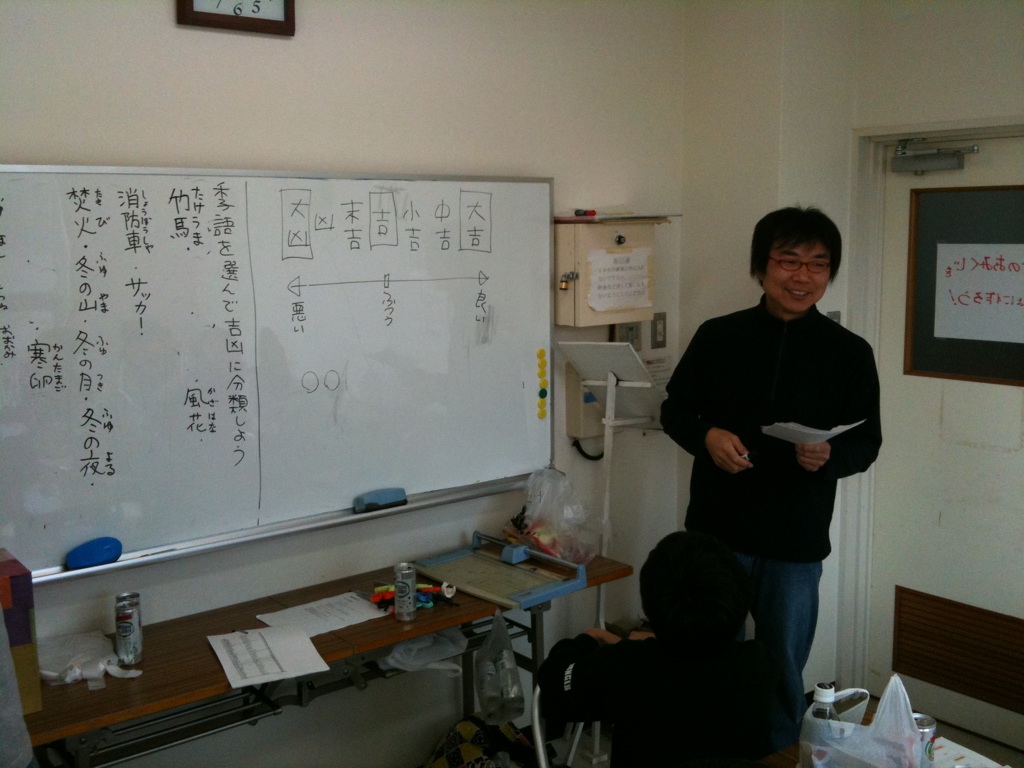 大吉
中吉
小吉
吉
末吉
凶
大凶
良い
ふつう
悪い
○○
季語を選んで吉凶に分類しよう
たけうま
竹馬・
かざはな
風花・
しょうぼうしゃ
消防車・サッカー・
たき び ふゆ やま ふゆ つき ふゆ よる
焚火・冬の山・冬の月・冬の夜・
かんたまご
寒卵
のおみくじを
に作ろう!
7 6 5